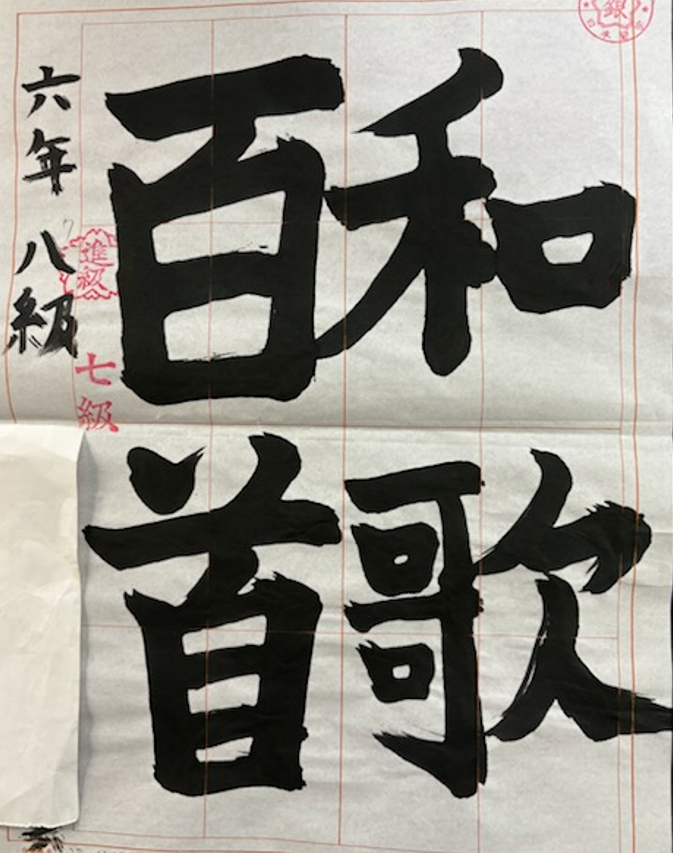 和歌
百首
六年 八級
進級
七級